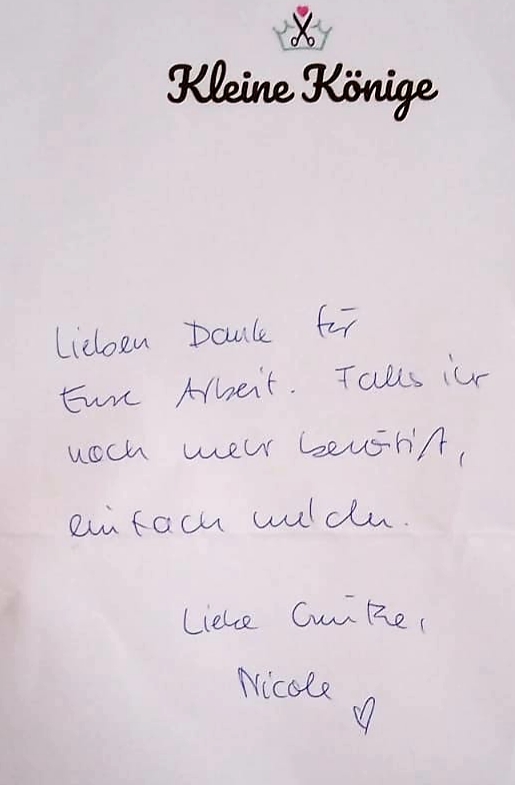 Kleine Könige
Lieben Dank für
Eure Arbeit. Falls ihr
noch mehr benötigt,
einfach melden.
Liebe Grüße,
Nicole